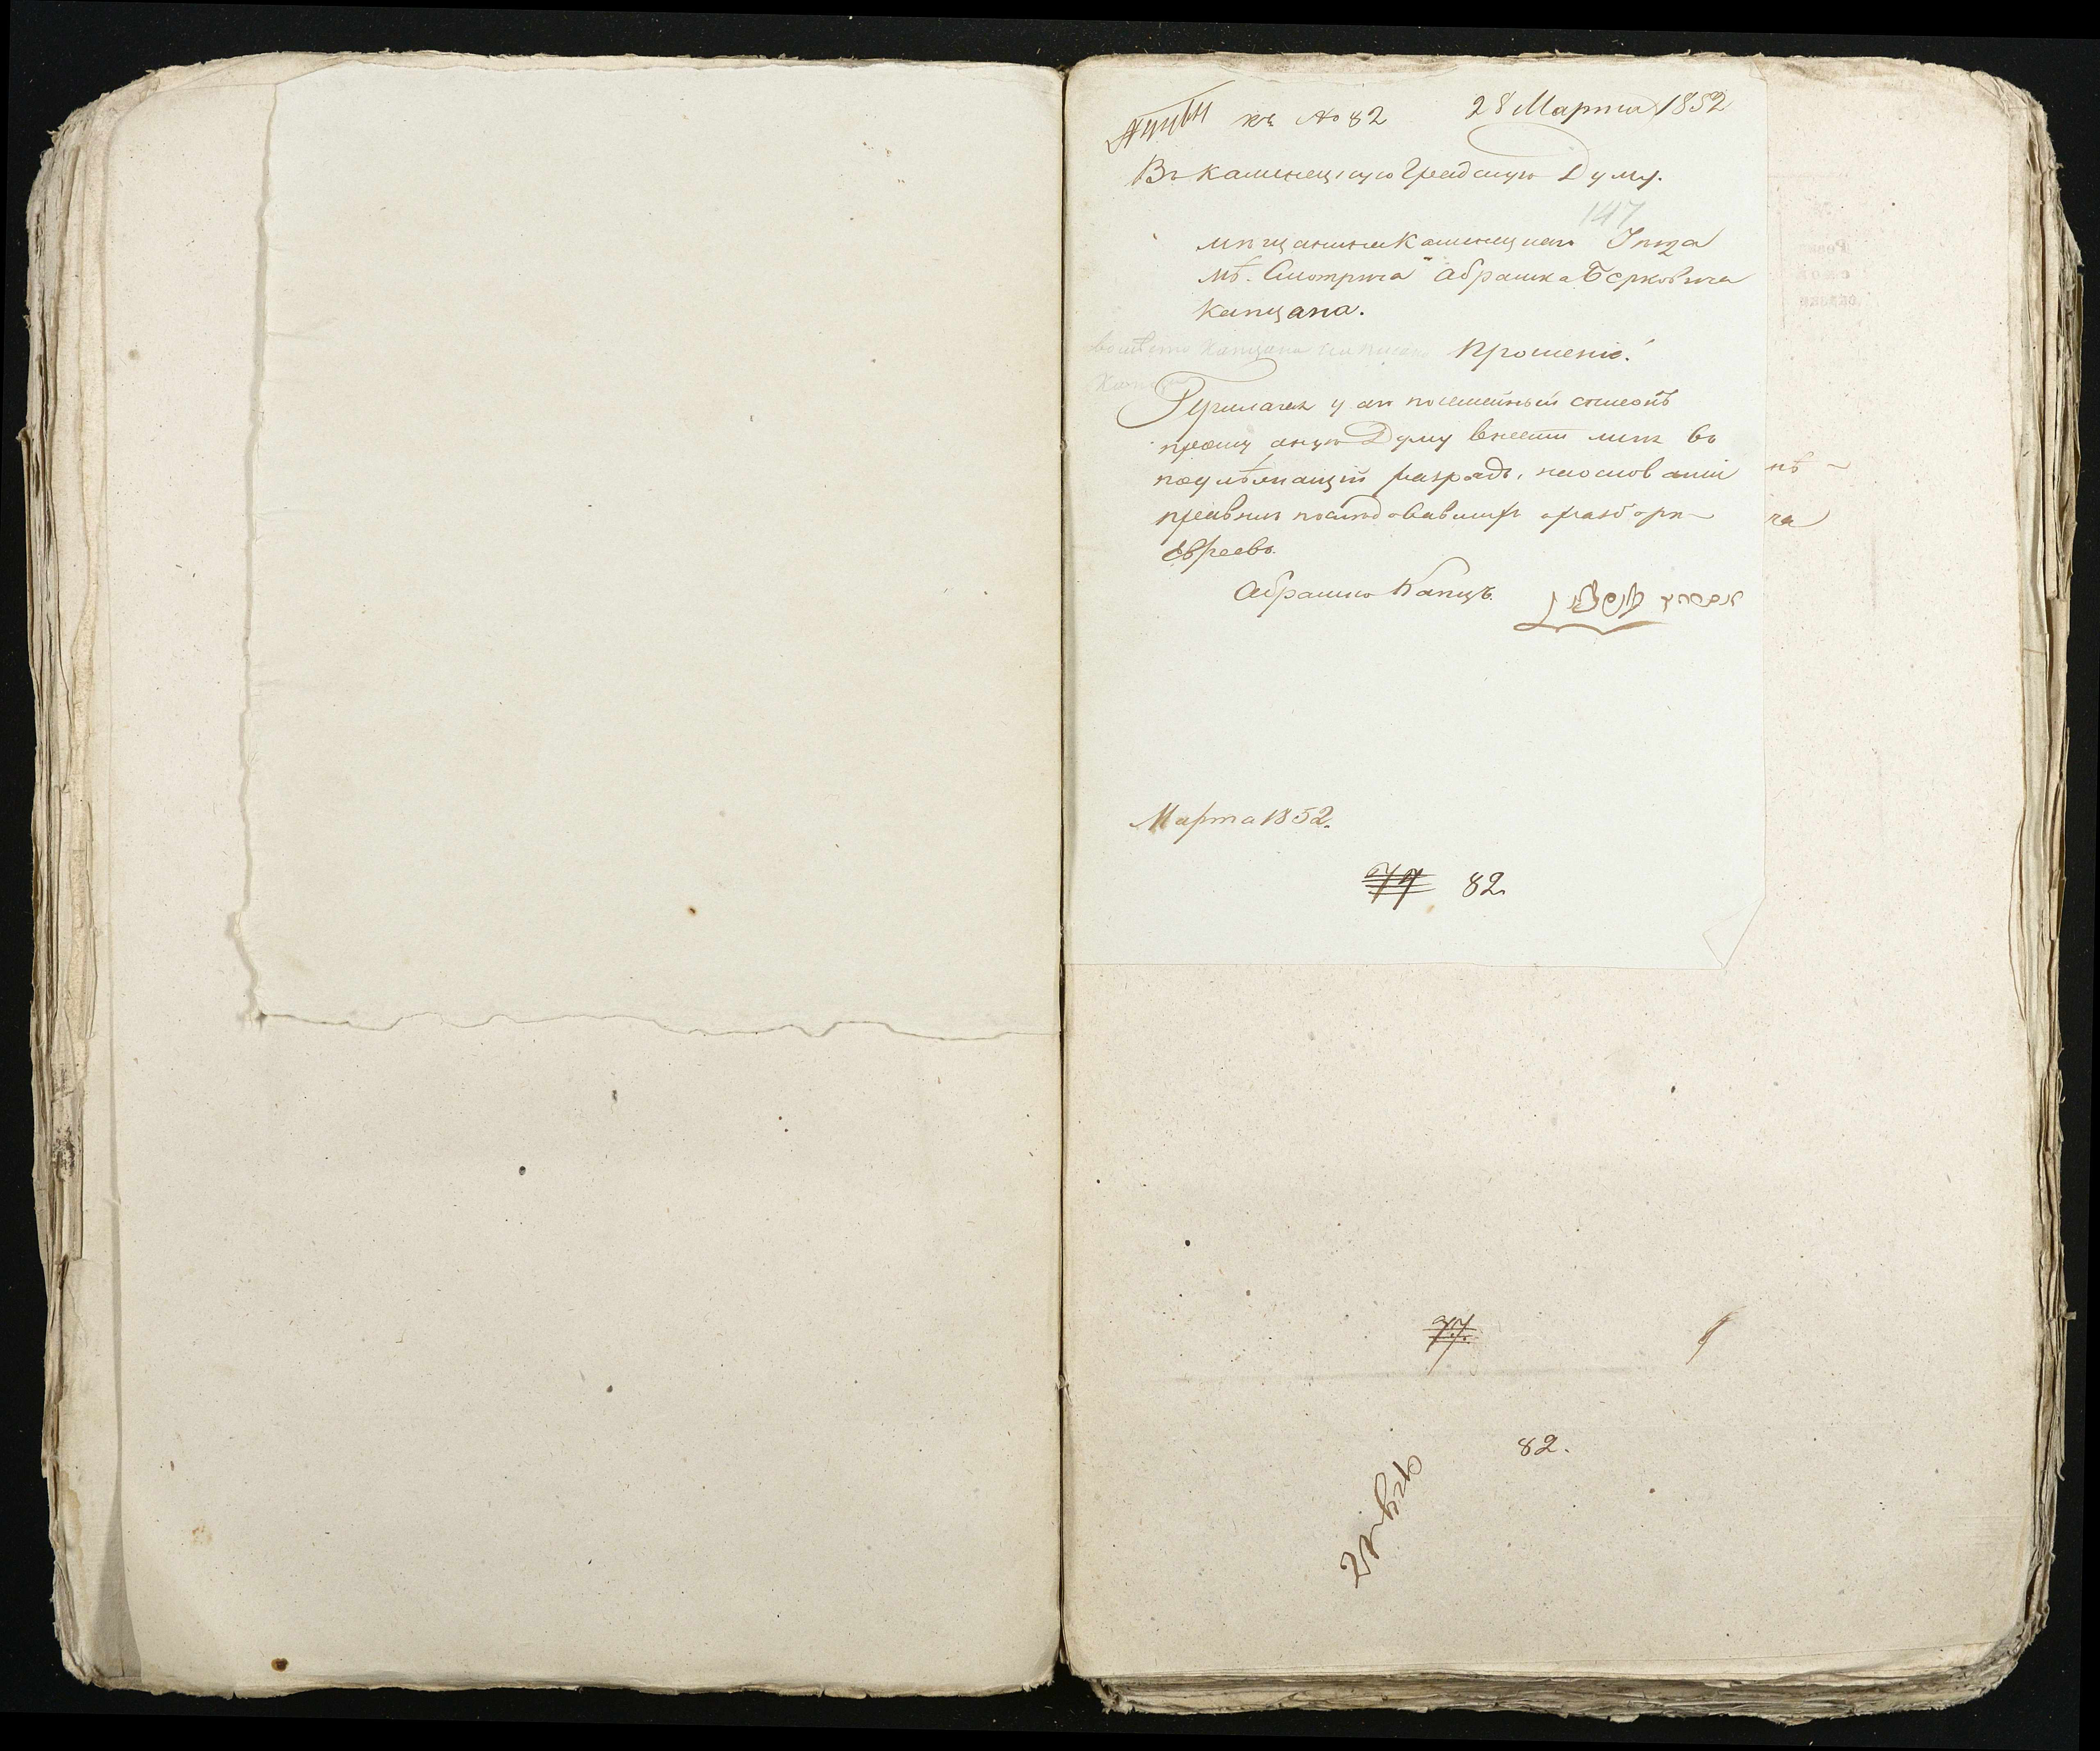 къ № 82 28 Марта 1852
Въ Каменецкую Градскую Думу.
147
мѣщанина Каменецкаго Уѣзда
мѣ. Смотрича Абрашка Берковича
Капцана.
Прошеніе!
Прилагая у сего посемейный списокъ
прошу оную Думу внести меня въ
подлѣжащій разрядъ, на основаніи
правилъ последовавшихъ о разборѣ
Евреевъ.
Абрашко Капцъ.
Марта 1852.
77 82.
77.
82.